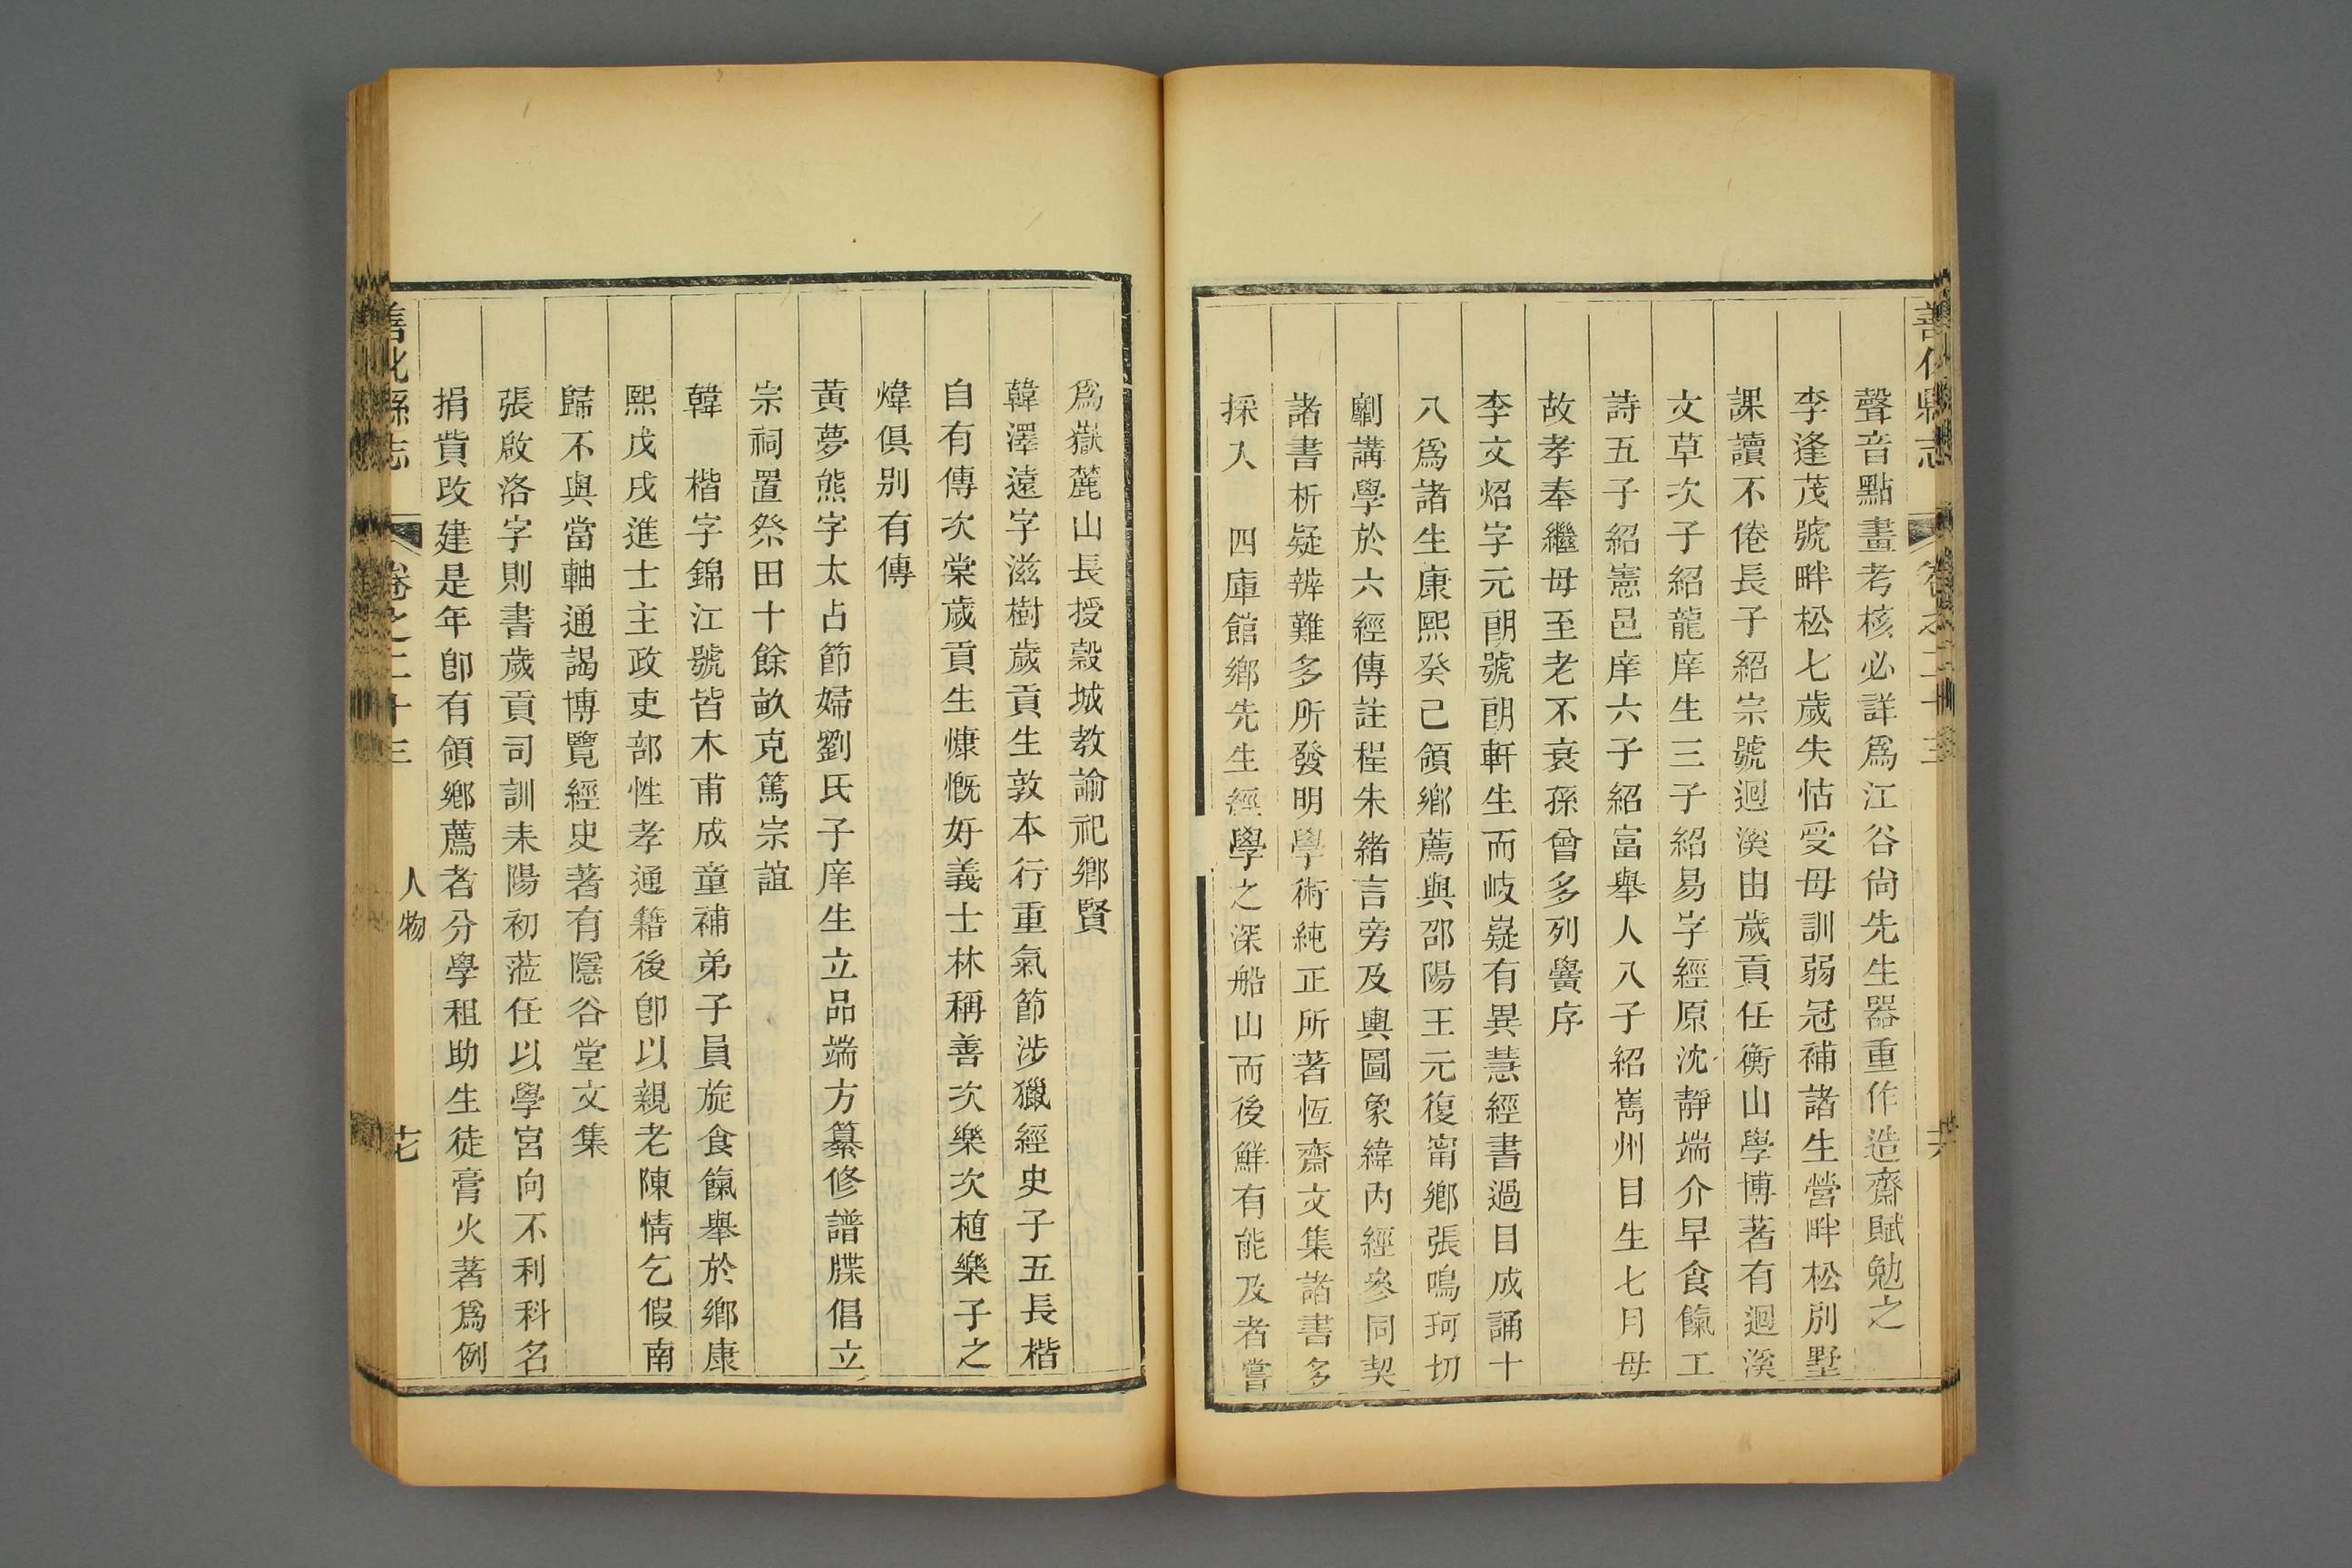 善化縣志
卷之二十三
聲音點畫考核必詳爲江谷尙先生器重作造齋賦勉之
李逢茂號畔松七歲失怙受母訓弱冠補諸生營畔松別墅
課讀不倦長子紹宗號迴溪由歲貢任衡山學博著有迴溪
文草次子紹龍庠生三子紹易字經原沈靜端介早食餼工
詩五子紹憲邑庠六子紹富舉人八子紹嶲州目生七月母
故孝奉繼母至老不衰孫曾多列黌序
李文炤字元朗號朗軒生而岐嶷有異慧經書過目成誦十
八爲諸生康熙癸己領鄉薦與邵陽王元復甯鄉張鳴珂切
劘講學於六經傳註程朱緒言旁及輿圖象緯內經參同契
諸書析疑辨難多所發明學術純正所著恆齋文集諸書多
採入　四庫館鄉先生經學之深船山而後鮮有能及者嘗
爲嶽麓山長授穀城教諭祀鄉賢
韓澤遠字滋樹歲貢生敦本行重氣節涉獵經史子五長楷
自有傳次棠歲貢生慷慨好義士林稱善次樂次植樂子之
煒俱別有傳
黃夢熊字太占節婦劉氏子庠生立品端方纂修譜牒倡立
宗祠置祭田十餘畝克篤宗誼
韓　楷字錦江號皆木甫成童補弟子員旋食餼舉於鄉康
熙戊戌進士主政吏部性孝通籍後卽以親老陳情乞假南
歸不與當軸通謁博覽經史著有隱谷堂文集
張啟洛字則書歲貢司訓耒陽初蒞任以學宮向不利科名
捐貲改建是年卽有領鄉薦者分學租助生徒膏火著爲例
善化縣志
卷之二十三
人物